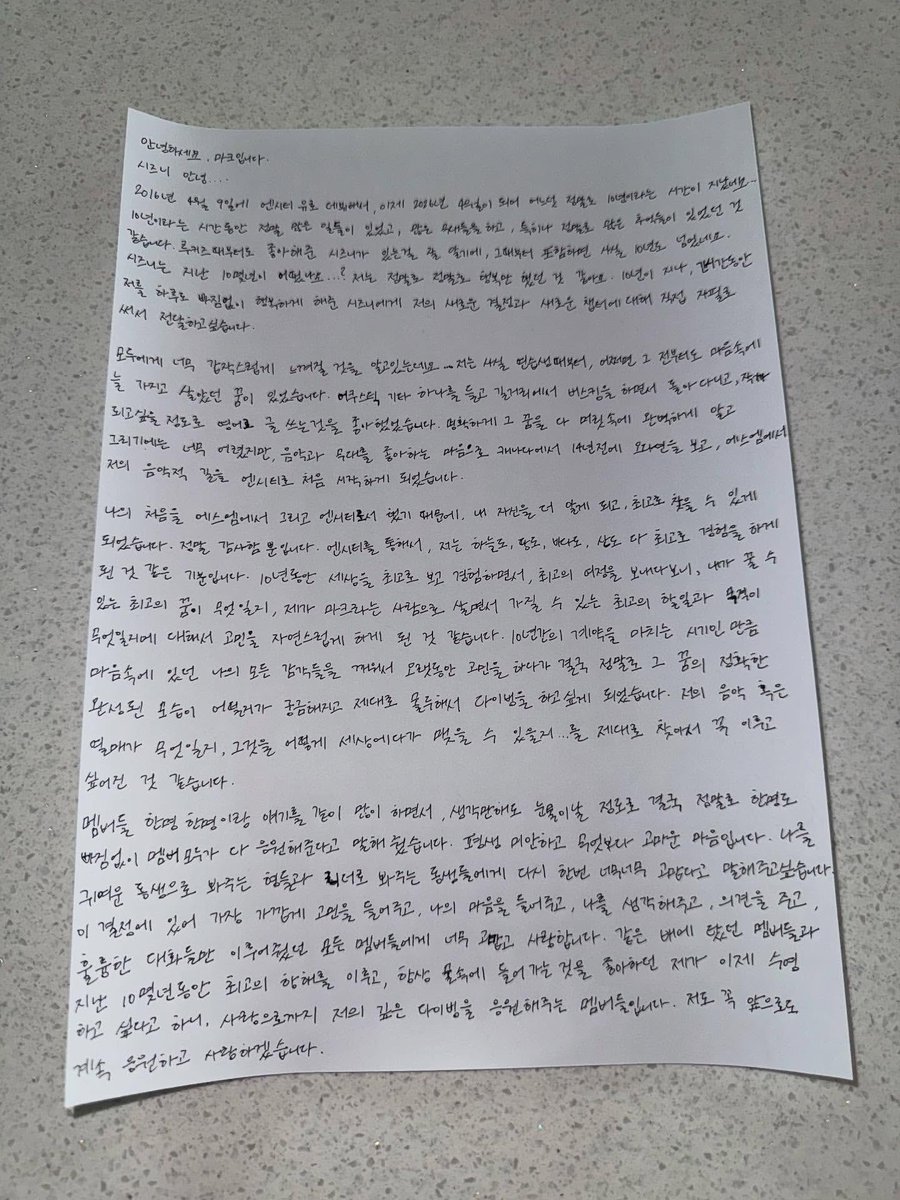 안녕하세요, 마크입니다.
시즈니 안녕....
2016년 4월 9일에 엔시티 유로 데뷔해서, 이제 2026년 4월이 되어 어느덧 정말로 10년이라는 시간이 지났네요...
10년이라는 시간동안 정말 많은 일들이 있었고, 많은 무대들을 하고, 특히나 정말로 많은 추억들이 있었던 것
같습니다. 루키즈 때부터도 좋아해준 시즈니가 있는걸 잘 알기에, 그때부터 포함하면 사실 10년도 넘었네요.
시즈니는 지난 10몇년이 어땠나요...? 저는 정말로 정말로 행복만 했던 것 같아요. 10년이 지나, 긴시간동안
저를 하루도 빠짐없이 행복하게 해준 시즈니에게 저의 새로운 결정과 새로운 챕터에 대해 직접 자필로
써서 전달하고싶습니다.
모두에게 너무 갑작스럽게 느껴질 것을 알고있는데요... 저는 사실 연습생때부터, 어쩌면 그 전부터도 마음속에
늘 가지고 살았던 꿈이 있었습니다. 어쿠스틱 기타 하나를 들고 길거리에서 버스킹을 하면서 돌아다니고,
되고싶을 정도로 영어로 글 쓰는것을 좋아했었습니다. 명확하게 그 꿈을 다 머릿속에 완벽하게 알고
그리기에는 너무 어렸지만, 음악과 무대를 좋아하는 마음으로 캐나다에서 14년전에 오디션을 보고, 에스엠에서
저의 음악적 길을 엔시티로 처음 시작하게 되었습니다.
나의 처음을 에스엠에서 그리고 엔시티로서 했기 때문에, 내 자신을 더 알게 되고, 최고로 찾을 수 있게
되었습니다. 정말 감사할 뿐입니다. 엔시티를 통해서, 저는 하늘도, 땅도, 바다도, 산도 다 최고로 경험을 하게
된 것 같은 기분입니다. 10년동안 세상을 최고로 보고 경험하면서, 최고의 여정을 보내다보니, 내가 꿀 수
있는 최고의 꿈이 무엇일지, 제가 마크라는 사람으로 살면서 가질 수 있는 최고의 할일과 목적이
무엇일지에 대해서 고민을 자연스럽게 하게 된 것 같습니다. 10년간의 계약을 마치는 시기인 만큼
마음속에 있던 나의 모든 감각들을 깨워서 오랫동안 고민을 하다가 결국 정말로 그 꿈의 정확한
완성된 모습이 어떨지가 궁금해지고 제대로 몰두해서 다이빙을 하고싶게 되었습니다. 저의 음악 혹은
열매가 무엇일지, 그것을 어떻게 세상에다가 맺을 수 있을지...를 제대로 찾아서 꼭 이루고
싶어진 것 같습니다.
멤버들 한명 한명이랑 얘기를 같이 많이 하면서, 생각만해도 눈물이날 정도로 결국 정말로 한명도
빠짐없이 멤버 모두가 다 응원해준다고 말해줬습니다. 평생 미안하고 무엇보다 고마운 마음입니다. 나를
귀여운 동생으로 봐주는 형들과 리더로 봐주는 동생들에게 다시 한번 너무너무 고맙다고 말해주고싶습니다.
이 결정에 있어 가장 가깝게 고민을 들어주고, 나의 마음을 들어주고, 나를 생각해주고, 의견을 주고,
훌륭한 대화들만 이루어줬던 모든 멤버들에게 너무 고맙고 사랑합니다. 같은 배에 탔던 멤버들과
지난 10몇년동안 최고의 항해를 이루고, 항상 물속에 들어가는 것을 좋아하던 제가 이제 수영
하고 싶다고 하니, 사랑으로까지 저의 깊은 다이빙을 응원해주는 멤버들입니다. 저도 꼭 앞으로도
계속 응원하고 사랑하겠습니다.